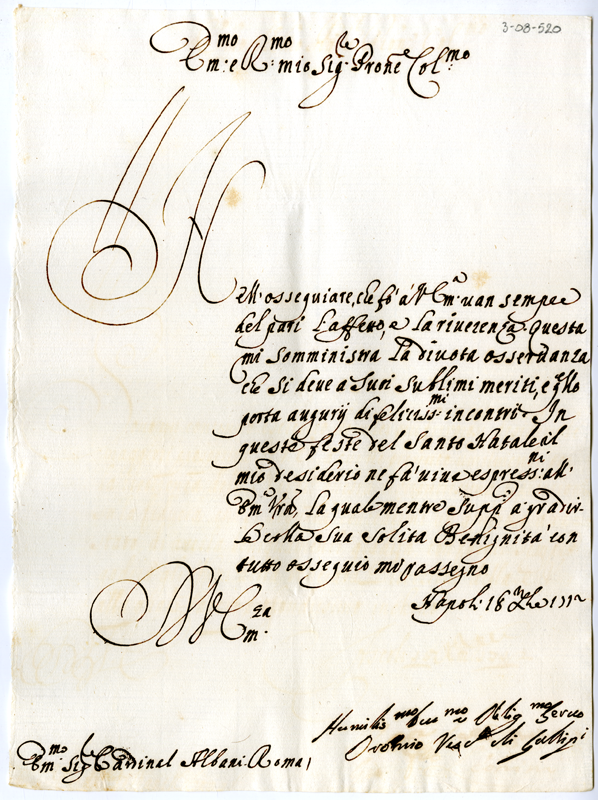 3-08-520
Em:mo e R:mo mio Sig:re Prone Col:mo
Nell'osseguiare, che fò à V. Em:a uan sempre
del pari l'affetto, e la riuerenza. Questa
mi somministra la diuota osseruanza
che si deue a Suoi sublimi meriti, e q.llo
porta augurij di felicissmi incontri. In
queste feste del Santo Natale il
mio desiderio ne fà uiue espressni all'
Em:a Vra, la quale mentre supp:o a gradir-
le colla Sua solita Benignità con
tutto osseguio mi rassegno
Napoli 16 Xbre 1712
D V Em:za
Humilis:mo Deu:mo Oblig:mo Seruo
Oronzio Vesc:o di Gallipi
Em:mo Sig:re Cardinal Albani. Roma